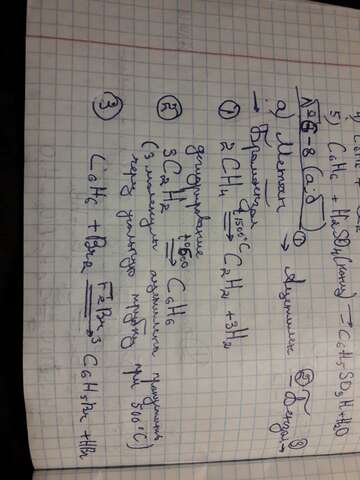 5) C6H6 + H2SO4(конц) → C6H5-SO3H + H2O
№6-8 (а;б)
а) Метан ① → Ацетилен ② → Бензол ③ →
→ Бромбензол
① 2CH4 1500°C → C2H2 + 3H2
дегидрирование
② 3C2H2 → C6H6
(3 молекулы ацетилена пропустить
через угольную трубку при 500°C)
③ C6H6 + Br2 FeBr3 → C6H5Br + HBr